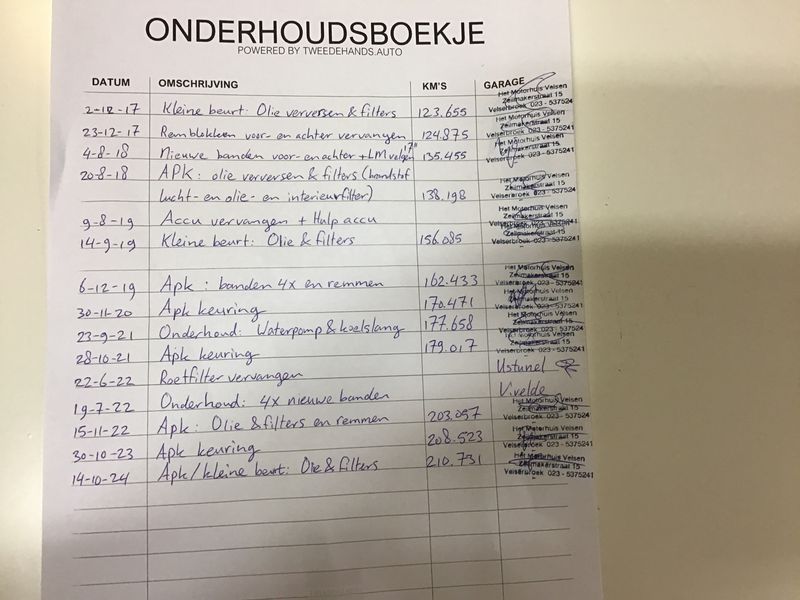 ONDERHOUDSBOEKJE
POWERED BY TWEEDEHANDS.AUTO
DATUM OMSCHRIJVING KM'S GARAGE
Het Motorhuis Velsen
Zeilmakerstraat 15
2-12-17 Kleine beurt: Olie verversen & filters 123.655 Velserbroek 023 - 5375241
Het Motorhuis Velsen
Zeilmakerstraat 15
23-12-17 Remblokken voor- en achter vervangen 124.875 Velserbroek 023 - 5375241
Het Motorhuis Velsen
4-8-18 Nieuwe banden voor- en achter + LM velgen 17" 135.455 Zeilmakerstraat 15
Velserbroek 023 - 5375241
20-8-18 APK: olie verversen & filters (brandstof
Het Motorhuis Velsen
Zeilmakerstraat 15
lucht- en olie- en interieurfilter) 138.198 Velserbroek 023 - 5375241
9-8-19 Accu vervangen + Hulp accu
Het Motorhuis Velsen
Zeilmakerstraat 15
14-9-19 Kleine beurt: Olie & filters 156.085 Velserbroek 023 - 5375241
Het Motorhuis Velsen
Zeilmakerstraat 15
6-12-19 Apk: banden 4x en remmen 162.433 Velserbroek 023 - 5375241
Het Motorhuis Velsen
Zeilmakerstraat 15
30-11-20 Apk keuring 170.471 Velserbroek 023 - 5375241
Het Motorhuis Velsen
Zeilmakerstraat 15
23-9-21 Onderhoud: Waterpomp & koelslang 177.658 Velserbroek 023 - 5375241
Het Motorhuis Velsen
Zeilmakerstraat 15
28-10-21 Apk keuring 179.017 Velserbroek 023 - 5375241
22-6-22 Roetfilter vervangen Ustunel
19-7-22 Onderhoud: 4x nieuwe banden Vrielde
Het Motorhuis Velsen
Zeilmakerstraat 15
15-11-22 Apk: Olie & filters en remmen 203.057 Velserbroek 023 - 5375241
Het Motorhuis Velsen
Zeilmakerstraat 15
30-10-23 Apk keuring 208.523 Velserbroek 023 - 5375241
Het Motorhuis Velsen
Zeilmakerstraat 15
14-10-24 Apk/kleine beurt: Olie & filters 210.731 Velserbroek 023 - 5375241